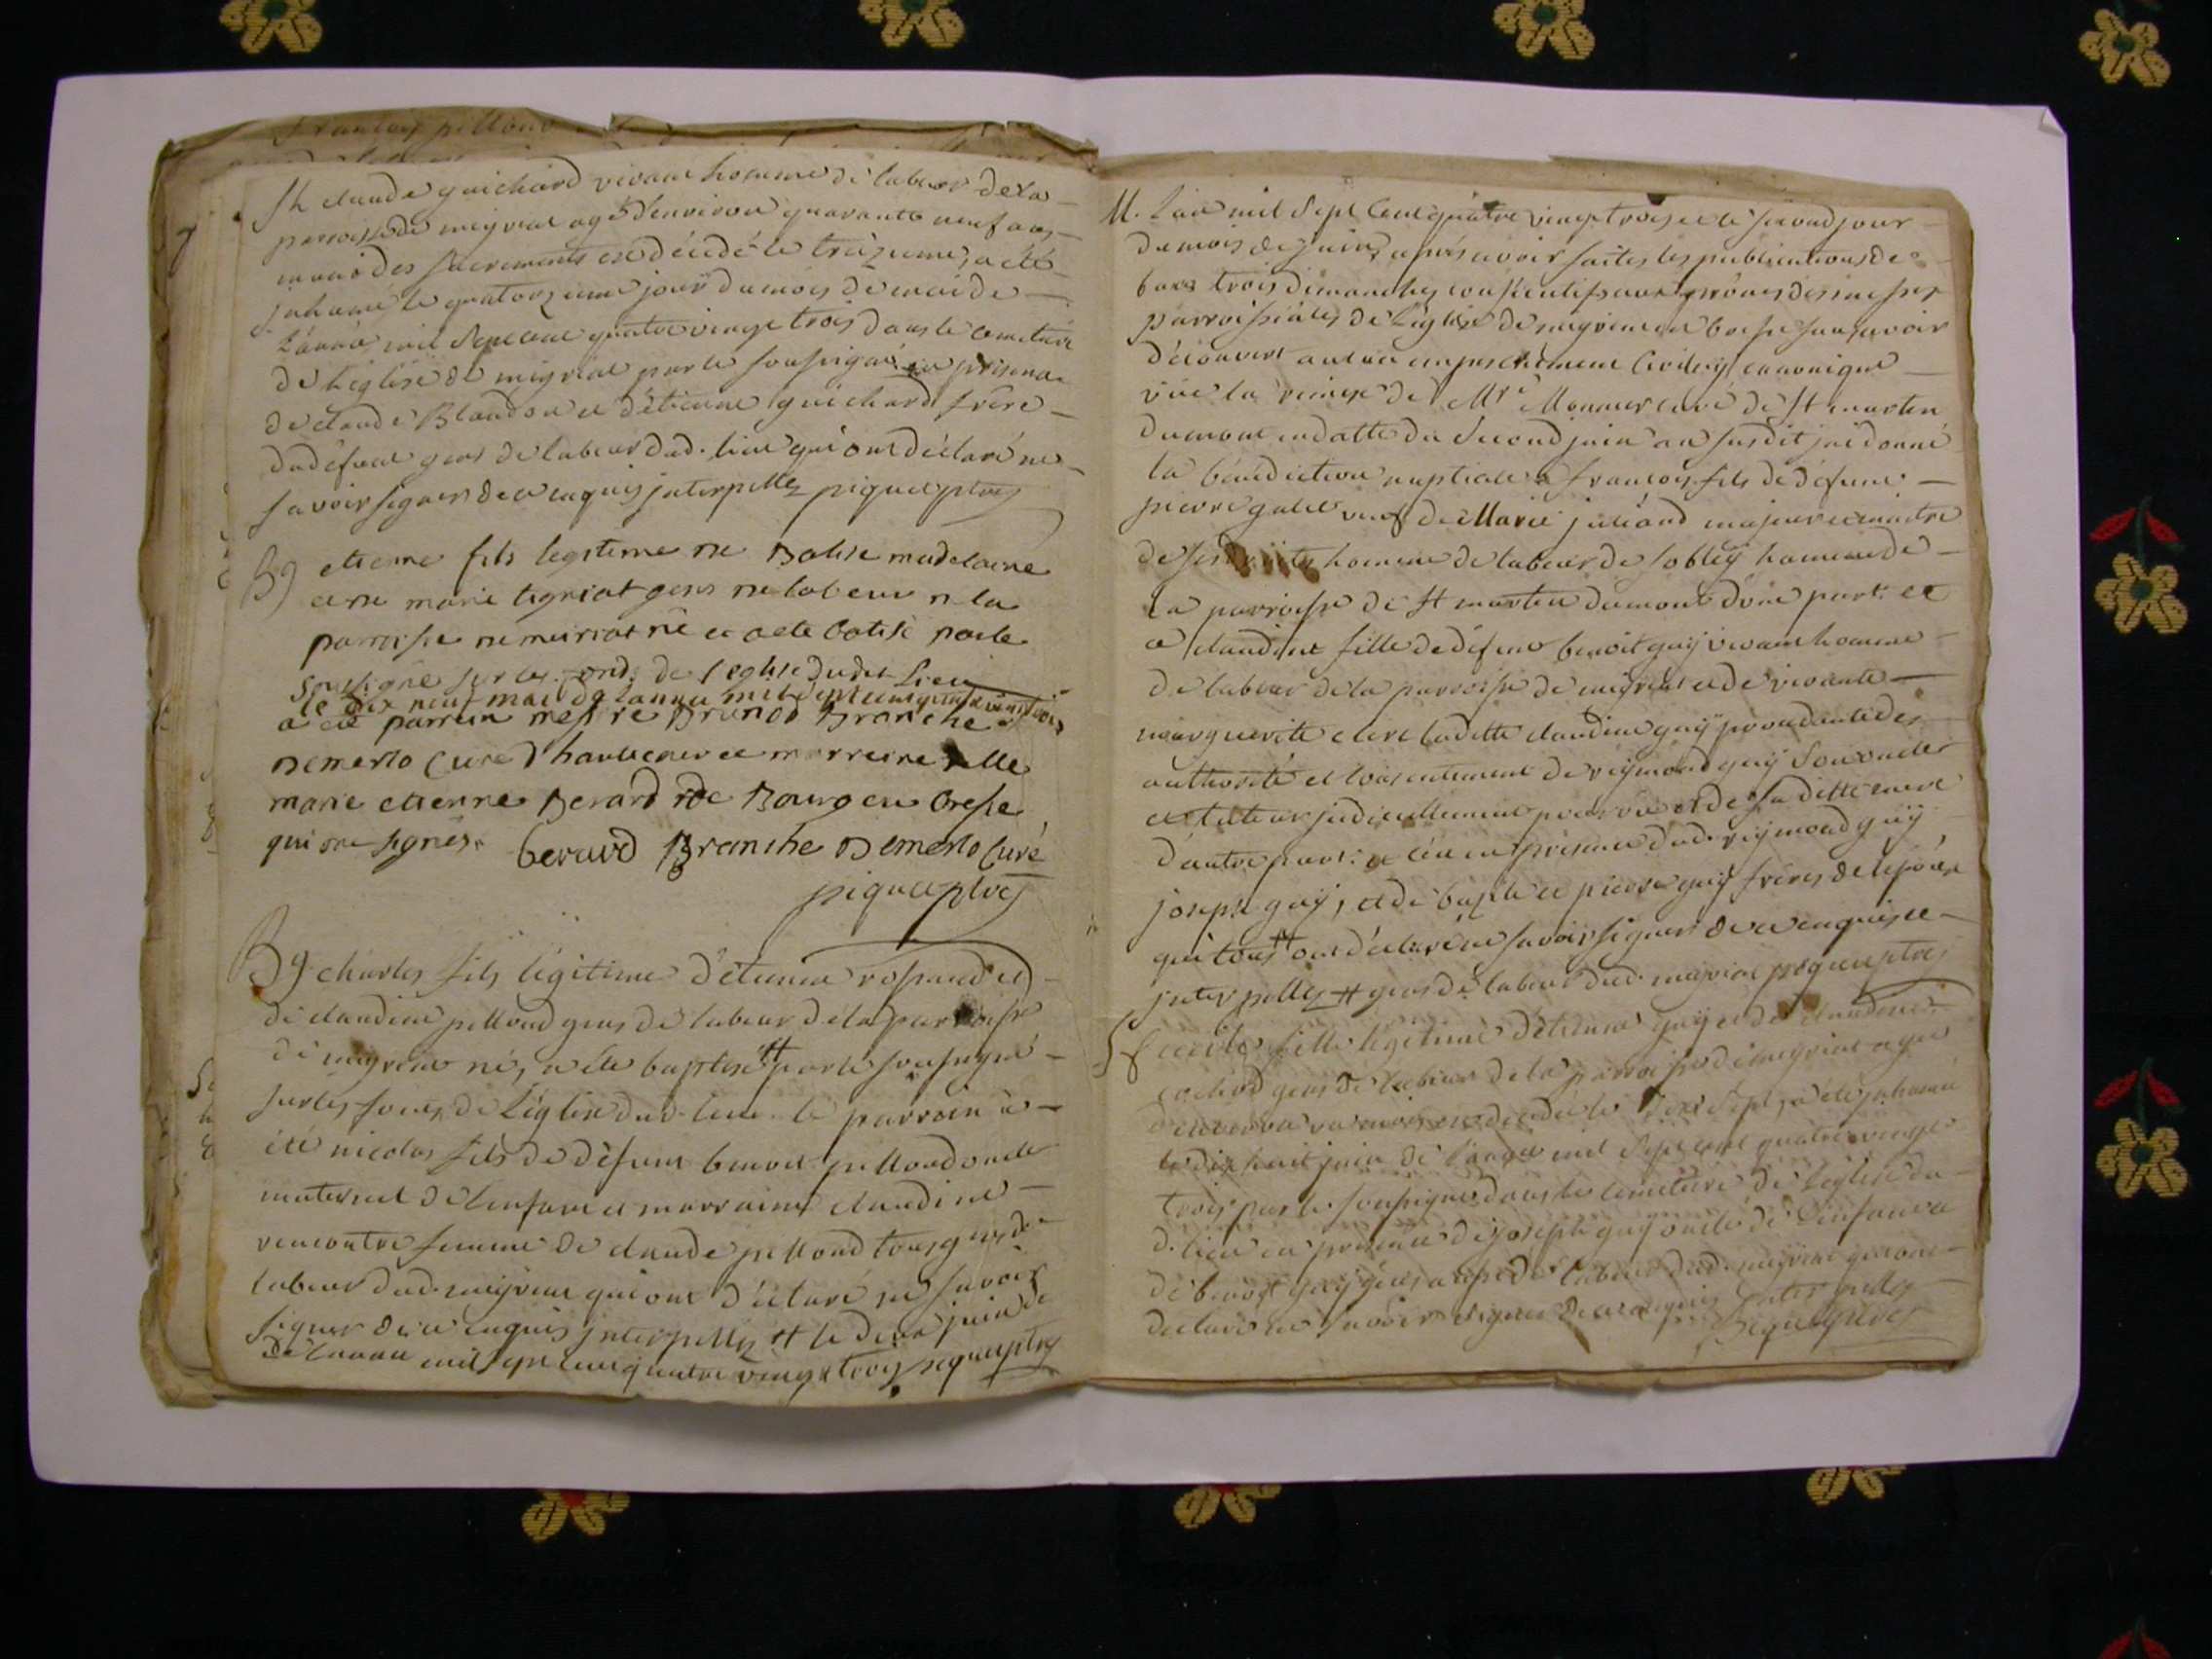 Sh claude guichard vivant homme de labeur de la
parroisse de meyriat agé d'environ quarante neuf ans
muni des sacrements est décédé le treizieme, a été
inhumé le quatorzieme jour du mois de mai de
l'année mil sept cent quatre vingt trois dans le cimetiere
de l'église de meyriat par le soussigné en présence
de claude Blandon et d'étienne guichard frère
du défunt gens de labeur dud. lieu qui ont déclaré ne
savoir signer de ce enquis interpellez piquet ptre
B g etienne fils legitime de madelaine
et de marie tigniat gens de labeur de la
parroisse de meiriat né et a ete batisé par le
sousigné sur les fonds de l'eglise dudit Lieu
le dix neuf mai de lannée mil sept cent quatre vingt trois
a été parrein messire Bruno Branche
Demerlo Curé d'hautecour et marreine delle
marie etienne Berard de Bourg en Bresse
qui ont signés. berard Branche Demerlo Curé
piquet ptre
B g charles fils légitime d'étienne et
de claudine pelloud gens de labeur de la parroisse
de meyriat né, a été baptisé # par le soussigné
sur les fonds de l'église dud. lieu le parrain a
été nicolas fils de défunt benoit pelloud oncle
maternel de l'enfant et marraine claudine
rencontre femme de claude pelloud tous gens de
labeur dud. meyriat qui ont déclaré ne savoir
signer de ce enquis interpellez # le deux juin de
de l'année mil sept cent quatre vingt trois piquet ptre
M. L'an mil sept cent quatre vingt trois et le second jour
du mois de juin, après avoir faites les publications de
bans trois dimanches consécutifs aux prônes des messes
parroissiales de l'église de meyriat en bresse sans avoir
découvert aucun empeschement civil ny canonique
vue la remise de Mre Monnier curé de St martin
du mont en datte du second juin an susdit j'ai donné
la bénédiction nuptiale a françois fils de défunt
pierre veuf de Marie juliand majeur et maitre
de ses droits homme de labeur de hameau de
la parroisse de St martin du mont d'une part: et
a claudine fille de défunt benoit guÿ vivant homme
de labeur de la parroisse de meyriat et de vivante
marguerite clerc ladite claudine guÿ procedante des
authorité et consentement de reÿmond guÿ son oncle
et tuteur judiciellement pourvu et de sa ditte mere
d'autre part: et ce en présence dud. reÿmond guÿ
joseph guÿ, et de baptiste et pierre guÿ frères de l'épouse
qui tous # ont déclaré ne savoir signer de ce enquis et
interpellez # gens de labeur dud. meyriat piquet ptre
Sf cécile fille légitime d'étienne guÿ et de claudine
gens de labeur de la parroisse de meyriat agée
d'environ mois est décédée le dix sept, a été inhumée
le dix huit juin de l'année mil sept cent quatre vingt
trois par le soussigné dans le cimetiere de l'église du
d. lieu en présence de joseph guÿ oncle de l'enfant et
de benoit guÿ gens de labeur dud. meyriat qui ont
déclaré ne savoir signer de ce enquis interpellez
Piquet ptre